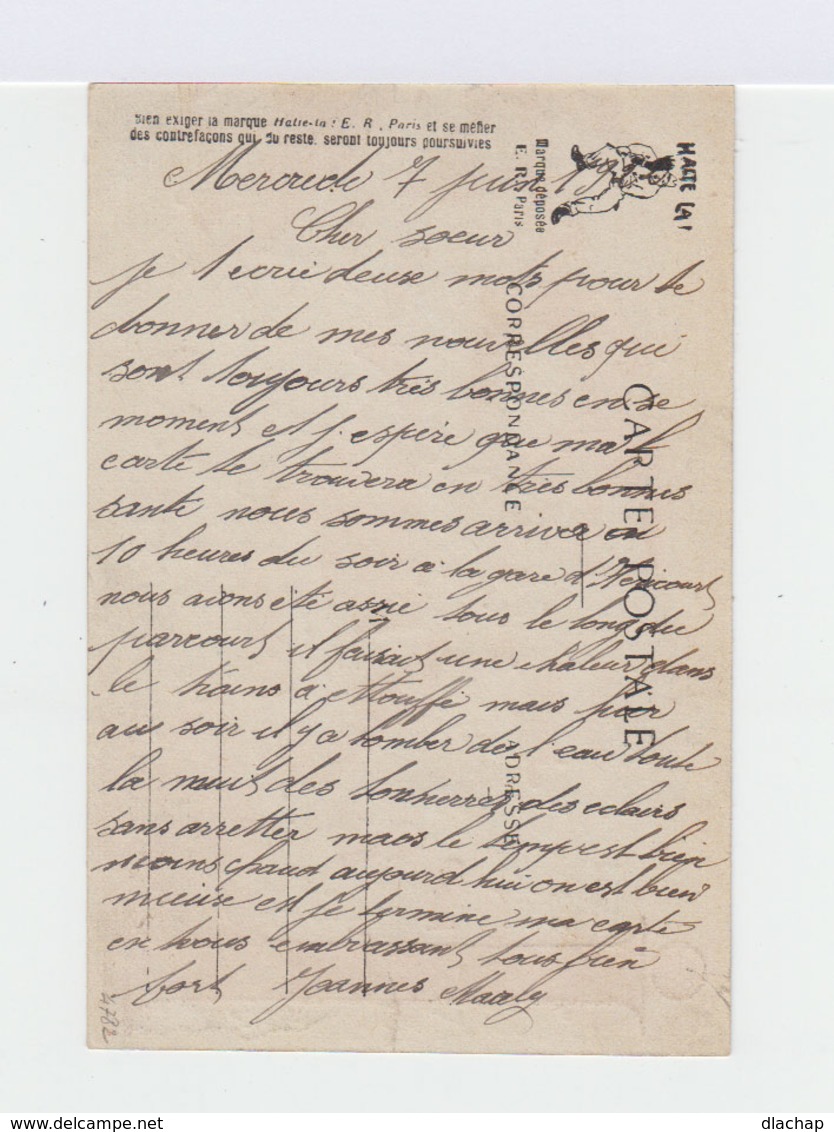 Bien exiger la marque Halte-là ! E. R., Paris et se méfier
des contrefaçons qui, du reste, seront toujours poursuivies
Marque déposée
E. R. Paris
HALTE LA!
CORRESPONDANCE
CARTE POSTALE
ADRESSE
Mercredi 7 juin
Cher soeur
je t ecrie deuse mots pour te
donner de mes nouvelles qui
sont toujours très bonnes en se
moment et j'espère que ma
carte te trouvera en très bonnes
sante nous sommes arriver en
10 heures du soir a la gare d'Héricourt
nous avons eté assie tous le long du
parcourt il faisait une chaleur dans
le trains a ettouffé mais par
au soir il y a tomber de l'eau toute
la nuit des tonnerres des eclairs
sans arretter mais le temp est bien
moins chaud aujourd hui on est bien
mieuse est je termine ma carte
en vous embrassant tous bien
fort Joannes Marly
4782
delcampe.net
dlachap